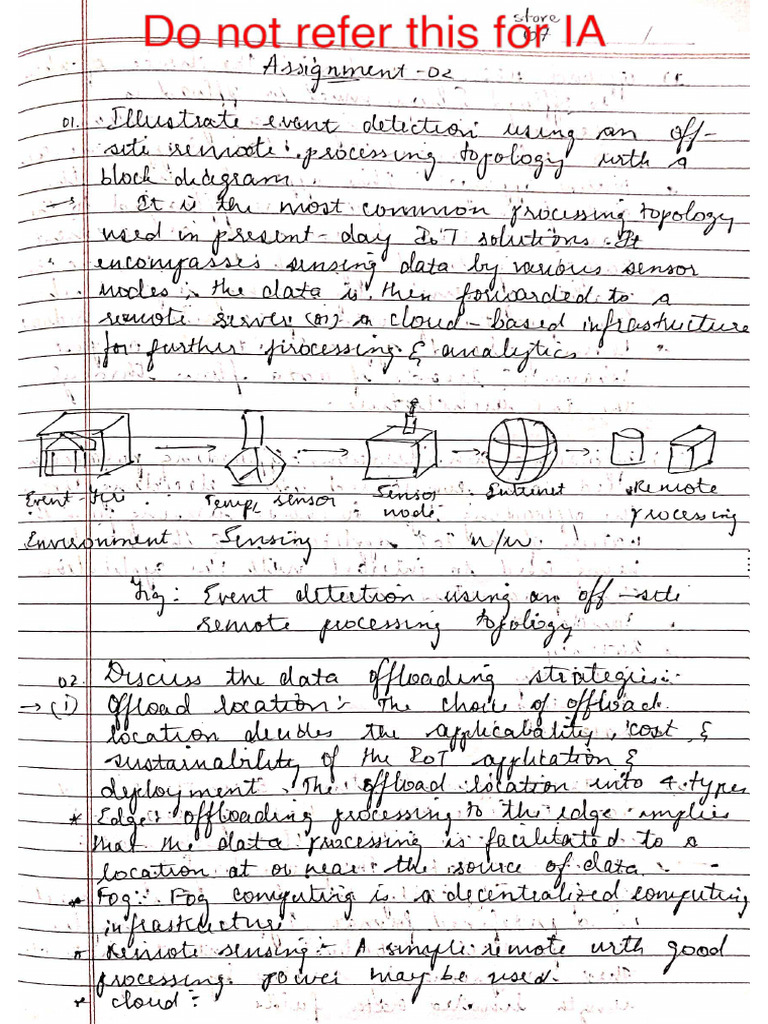 store
07
Do not refer this for IA
Assignment-02
01. Illustrate event detection using an off-
site remote processing topology with a
block diagram.
→ It is the most common processing topology
used in present-day IoT solutions. It
encompasses sensing data by various sensor
nodes; the data is then forwarded to a
remote server (or) a cloud-based infrastructure
for further processing & analytics.
Event-Fire Temp. sensor Sensor Internet Remote
node processing
Environment Sensing n/w
Fig: Event detection using an off-site
remote processing topology
02. Discuss the data offloading strategies:-
→ (i) Offload location:- The choice of offload
location decides the applicability, cost &
sustainability of the IoT application &
deployment. The offload location into 4 types
* Edge: offloading processing to the edge implies
that the data processing is facilitated to a
location at or near the source of data.
* Fog:- Fog computing is a decentralized computing
infrastructure
* Remote sensing:- A simple remote with good
processing power may be used.
* cloud:-